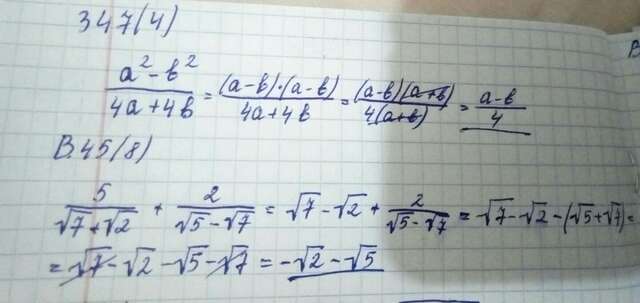 347(4)
(a² - b²)/(4a + 4b) = ((a-b)·(a-b))/(4a+4b) = ((a-b)(a+b))/(4(a+b)) = (a-b)/4
В.45(8)
5/(√7+√2) + 2/(√5-√7) = √7 - √2 + 2/(√5-√7) = √7 - √2 - (√5+√7) =
= √7 - √2 - √5 - √7 = -√2 - √5
В